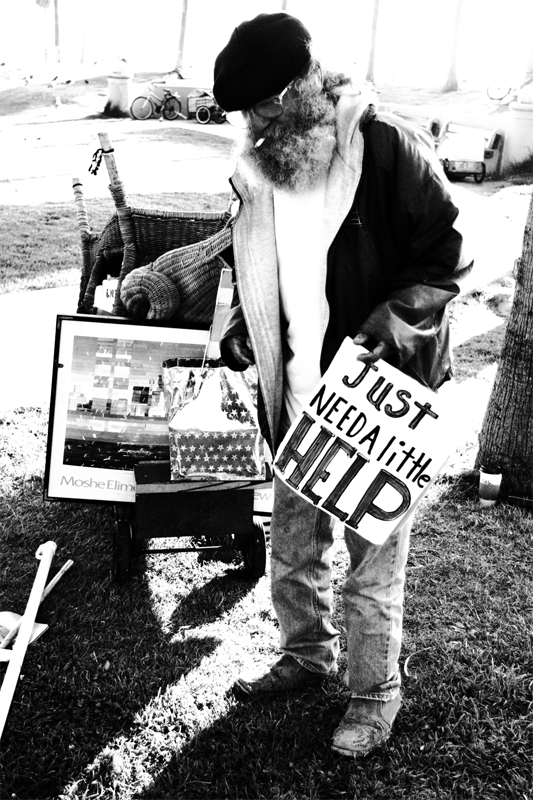 JUST
NEED A little
HELP
MosheElim